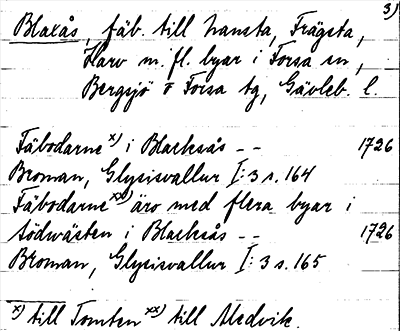 3)
Blaxås, fäb. till Hansta, Frägsta,
Harv m. fl. byar i Forsa sn,
Bergsjö o Forsa tg, Gävleb. l.
Fäbodarne x) i Blacksås - - 1726
Broman, Glysisvallur I: 3 s. 164
Fäbodarne xx) äro med flera byar i
södwästen i Blacksås - - 1726
Broman, Glysisvallur I: 3 s. 165
x) till Tomten xx) till Aledvik.